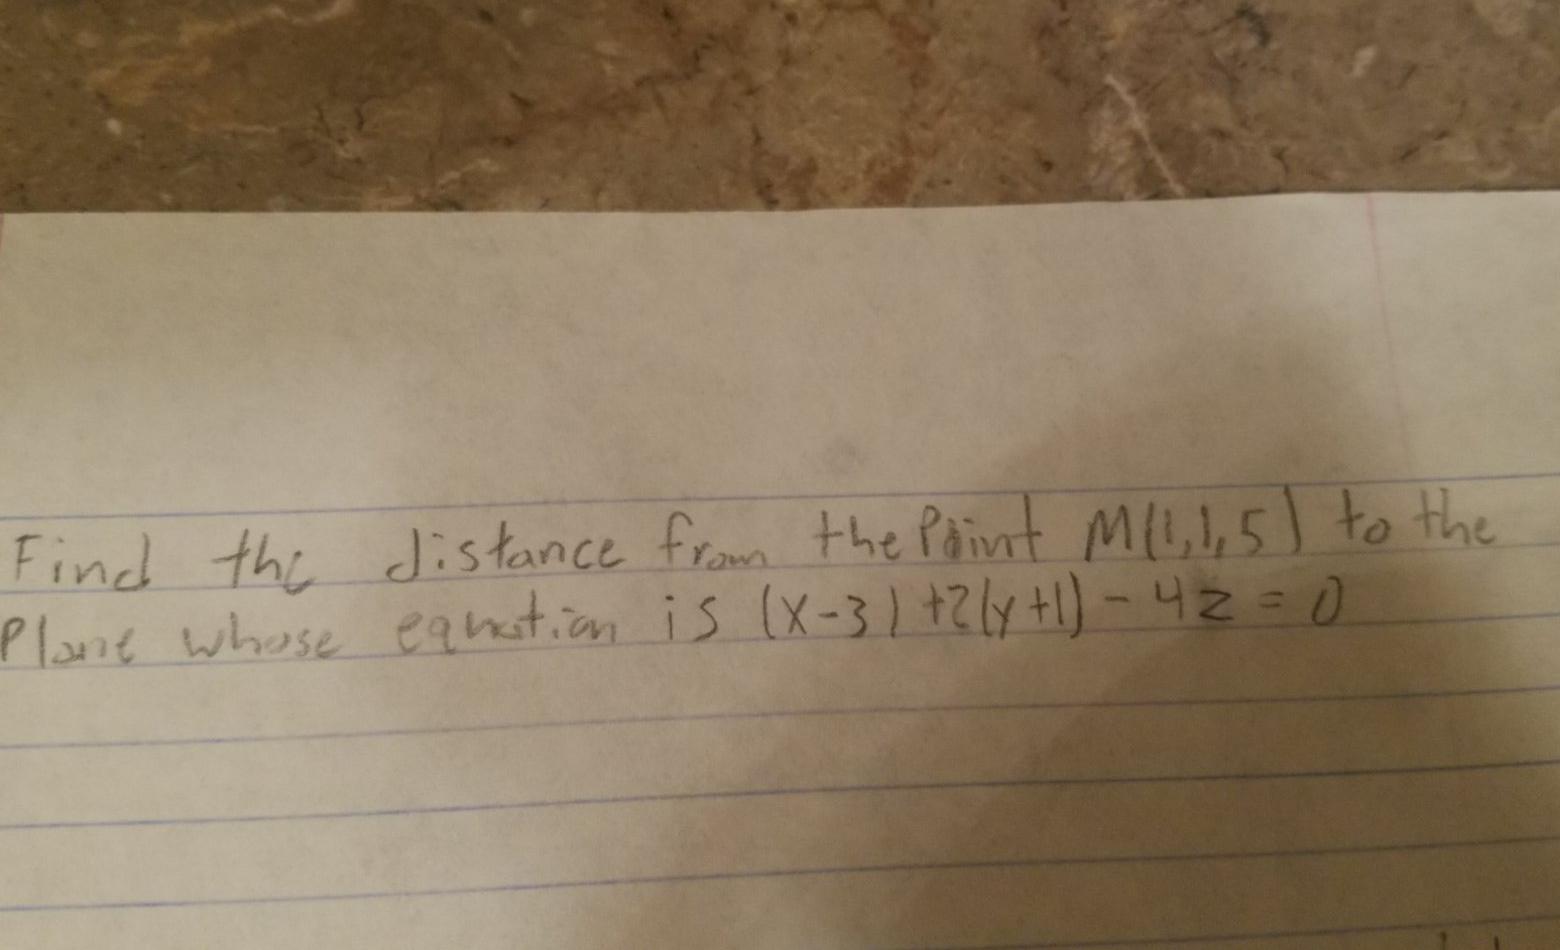 Find the distance from the Point M(1,1,5) to the
Plane whose equation is (x-3)+2(y+1)-4z=0